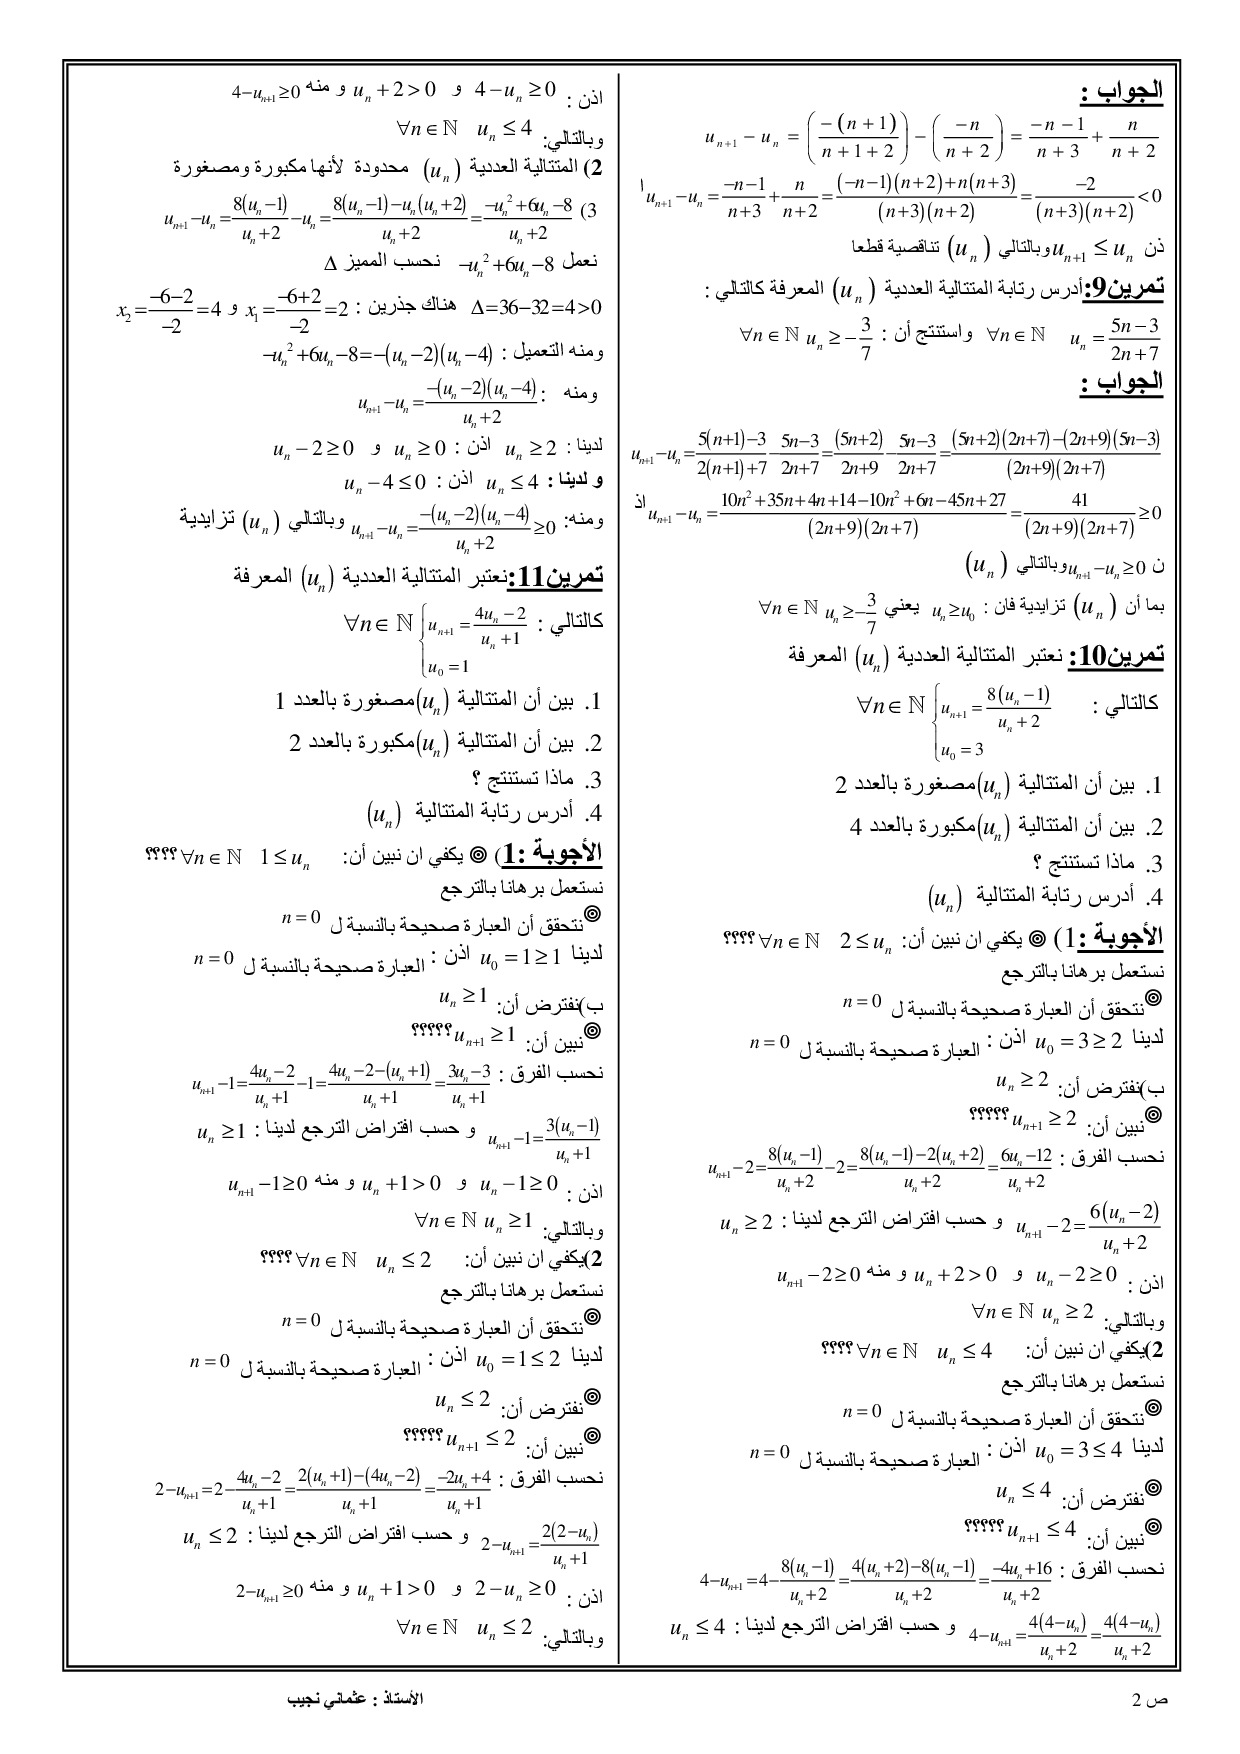 الجواب :
u_{n+1} − u_n = (−(n+1)/(n+1+2)) − (−n/(n+2)) = (−n−1)/(n+3) + n/(n+2)
u_{n+1} − u_n = (−n−1)/(n+3) + n/(n+2) = ((−n−1)(n+2)+n(n+3))/((n+3)(n+2)) = −2/((n+3)(n+2)) < 0 ا
ذن u_{n+1} ≤ u_n وبالتالي (u_n) تناقصية قطعا
تمرين9: أدرس رتابة المتتالية العددية (u_n) المعرفة كالتالي :
u_n = (5n−3)/(2n+7) ∀n∈ℕ واستنتج أن : u_n ≥ −3/7 ∀n∈ℕ
الجواب :
u_{n+1}−u_n = (5(n+1)−3)/(2(n+1)+7) − (5n−3)/(2n+7) = (5n+2)/(2n+9) − (5n−3)/(2n+7) = ((5n+2)(2n+7)−(2n+9)(5n−3))/((2n+9)(2n+7))
u_{n+1}−u_n = (10n²+35n+4n+14−10n²+6n−45n+27)/((2n+9)(2n+7)) = 41/((2n+9)(2n+7)) ≥ 0 اذ
ن u_{n+1}−u_n ≥ 0 وبالتالي (u_n)
بما أن (u_n) تزايدية فان : u_n ≥ u_0 يعني u_n ≥ −3/7 ∀n∈ℕ
تمرين10: نعتبر المتتالية العددية (u_n) المعرفة
كالتالي : { u_{n+1} = 8(u_n−1)/(u_n+2) ; u_0 = 3 ∀n∈ℕ
1. بين أن المتتالية (u_n) مصغورة بالعدد 2
2. بين أن المتتالية (u_n) مكبورة بالعدد 4
3. ماذا تستنتج ؟
4. أدرس رتابة المتتالية (u_n)
الأجوبة :1) ◎ يكفي ان نبين أن: 2 ≤ u_n ∀n∈ℕ ؟؟؟؟
نستعمل برهانا بالترجع
◎نتحقق أن العبارة صحيحة بالنسبة ل n = 0
لدينا u_0 = 3 ≥ 2 اذن : العبارة صحيحة بالنسبة ل n = 0
ب)نفترض أن: u_n ≥ 2
◎نبين أن: u_{n+1} ≥ 2 ؟؟؟؟؟
نحسب الفرق : u_{n+1}−2 = 8(u_n−1)/(u_n+2) − 2 = (8(u_n−1)−2(u_n+2))/(u_n+2) = (6u_n−12)/(u_n+2)
u_{n+1}−2 = 6(u_n−2)/(u_n+2) و حسب افتراض الترجع لدينا : u_n ≥ 2
اذن : u_n − 2 ≥ 0 و u_n + 2 > 0 و منه u_{n+1} − 2 ≥ 0
وبالتالي: u_n ≥ 2 ∀n∈ℕ
2)يكفي ان نبين أن: u_n ≤ 4 ∀n∈ℕ ؟؟؟؟
نستعمل برهانا بالترجع
◎نتحقق أن العبارة صحيحة بالنسبة ل n = 0
لدينا u_0 = 3 ≤ 4 اذن : العبارة صحيحة بالنسبة ل n = 0
◎نفترض أن: u_n ≤ 4
◎نبين أن: u_{n+1} ≤ 4 ؟؟؟؟؟
نحسب الفرق : 4−u_{n+1} = 4 − 8(u_n−1)/(u_n+2) = (4(u_n+2)−8(u_n−1))/(u_n+2) = (−4u_n+16)/(u_n+2)
4−u_{n+1} = 4(4−u_n)/(u_n+2) = 4(4−u_n)/(u_n+2) و حسب افتراض الترجع لدينا : u_n ≤ 4
اذن : 4−u_n ≥ 0 و u_n + 2 > 0 و منه 4−u_{n+1} ≥ 0
وبالتالي: u_n ≤ 4 ∀n∈ℕ
2) المتتالية العددية (u_n) محدودة لأنها مكبورة ومصغورة
3) u_{n+1}−u_n = 8(u_n−1)/(u_n+2) − u_n = (8(u_n−1)−u_n(u_n+2))/(u_n+2) = (−u_n²+6u_n−8)/(u_n+2)
نعمل −u_n²+6u_n−8 نحسب المميز Δ
Δ=36−32=4>0 هناك جذرين : x_1 = (−6+2)/−2 = 2 و x_2 = (−6−2)/−2 = 4
ومنه التعميل : −u_n²+6u_n−8 = −(u_n−2)(u_n−4)
ومنه : u_{n+1}−u_n = −(u_n−2)(u_n−4)/(u_n+2)
لدينا : u_n ≥ 2 اذن : u_n ≥ 0 و u_n − 2 ≥ 0
و لدينا : u_n ≤ 4 اذن : u_n − 4 ≤ 0
ومنه: u_{n+1}−u_n = −(u_n−2)(u_n−4)/(u_n+2) ≥ 0 وبالتالي (u_n) تزايدية
تمرين11: نعتبر المتتالية العددية (u_n) المعرفة
كالتالي : { u_{n+1} = (4u_n−2)/(u_n+1) ; u_0 = 1 ∀n∈ℕ
1. بين أن المتتالية (u_n) مصغورة بالعدد 1
2. بين أن المتتالية (u_n) مكبورة بالعدد 2
3. ماذا تستنتج ؟
4. أدرس رتابة المتتالية (u_n)
الأجوبة :1) ◎ يكفي ان نبين أن: 1 ≤ u_n ∀n∈ℕ ؟؟؟؟
نستعمل برهانا بالترجع
◎نتحقق أن العبارة صحيحة بالنسبة ل n = 0
لدينا u_0 = 1 ≥ 1 اذن : العبارة صحيحة بالنسبة ل n = 0
ب)نفترض أن: u_n ≥ 1
◎نبين أن: u_{n+1} ≥ 1 ؟؟؟؟؟
نحسب الفرق : u_{n+1}−1 = (4u_n−2)/(u_n+1) − 1 = (4u_n−2−(u_n+1))/(u_n+1) = (3u_n−3)/(u_n+1)
u_{n+1}−1 = 3(u_n−1)/(u_n+1) و حسب افتراض الترجع لدينا : u_n ≥ 1
اذن : u_n − 1 ≥ 0 و u_n + 1 > 0 و منه u_{n+1} − 1 ≥ 0
وبالتالي: u_n ≥ 1 ∀n∈ℕ
2)يكفي ان نبين أن: u_n ≤ 2 ∀n∈ℕ ؟؟؟؟
نستعمل برهانا بالترجع
◎نتحقق أن العبارة صحيحة بالنسبة ل n = 0
لدينا u_0 = 1 ≤ 2 اذن : العبارة صحيحة بالنسبة ل n = 0
◎نفترض أن: u_n ≤ 2
◎نبين أن: u_{n+1} ≤ 2 ؟؟؟؟؟
نحسب الفرق : 2−u_{n+1} = 2 − (4u_n−2)/(u_n+1) = (2(u_n+1)−(4u_n−2))/(u_n+1) = (−2u_n+4)/(u_n+1)
2−u_{n+1} = 2(2−u_n)/(u_n+1) و حسب افتراض الترجع لدينا : u_n ≤ 2
اذن : 2−u_n ≥ 0 و u_n + 1 > 0 و منه 2−u_{n+1} ≥ 0
وبالتالي: u_n ≤ 2 ∀n∈ℕ
ص 2
الأستاذ : عثماني نجيب